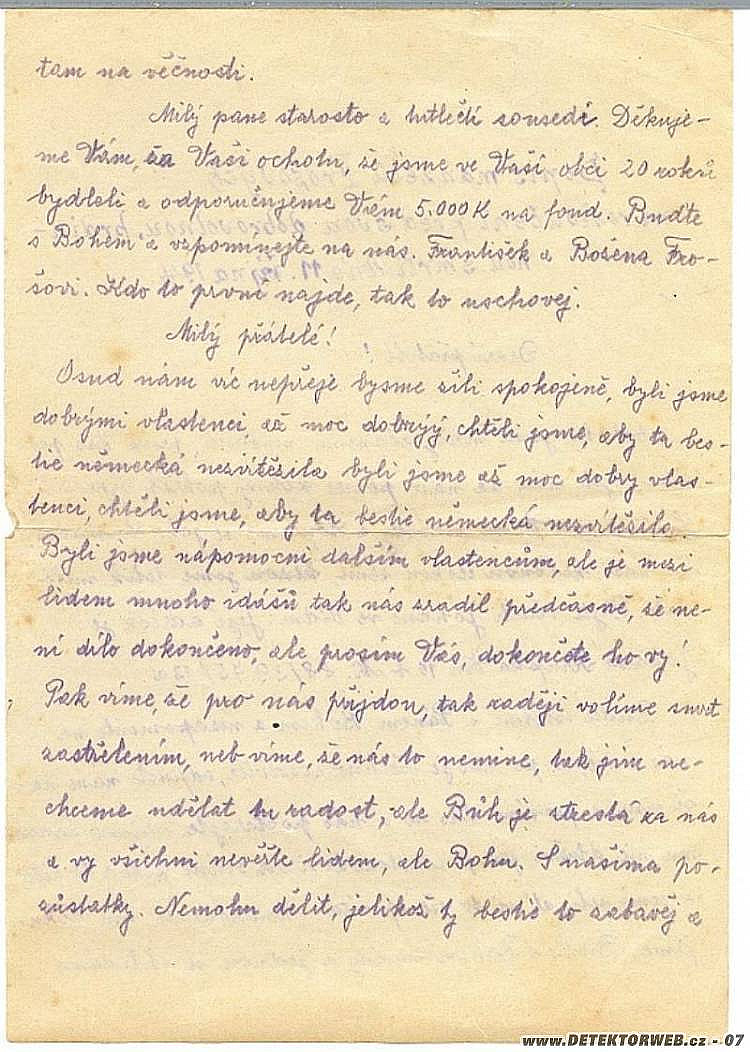 tam na věčnosti.
Milý pane starosto a hutlečtí sousedí. Děkuje-
me Vám, za Vaši ochotu, še jsme ve Vaší obci 20 roků
bydleli a odporučujeme Vám 5.000 K na fond. Buďte
s Bohem a vzpomínejte na nás. František a Bošena Fro-
šovi. Kdo to prvni najde, tak to uschovej.
Milý přátelé!
Osud nám víc nepřeje bysme šili spokojeně, byli jsme
dobrými vlastenci, až moc dobrýý, chtěli jsme, aby ta bes-
tie německá nezvítězila byli jsme až moc dobry vlas-
tenci, chtěli jsme, aby ta bestie německá nezvítěsila.
Byli jsme nápomocni dalším vlastencům, ale je mezi
lidem mnoho idášů tak nás zradil předčasně, še ne-
ní dílo dokončeno, ale prosim Vás, dokončete ho vy!
Pak víme, že pro nás přijdou, tak raději volíme smrt
zastřelením, neb víme, še nás to nemine, tak jim ne-
chceme udělat tu radost, ale Bůh je strestá za nás
a vy všichni nevěřte lidem, ale Bohu. S našima po-
zůstatky. Nemohu dělit, jelikoš ty bestie to zabavěj a
www.DETEKTORWEB.cz - 07